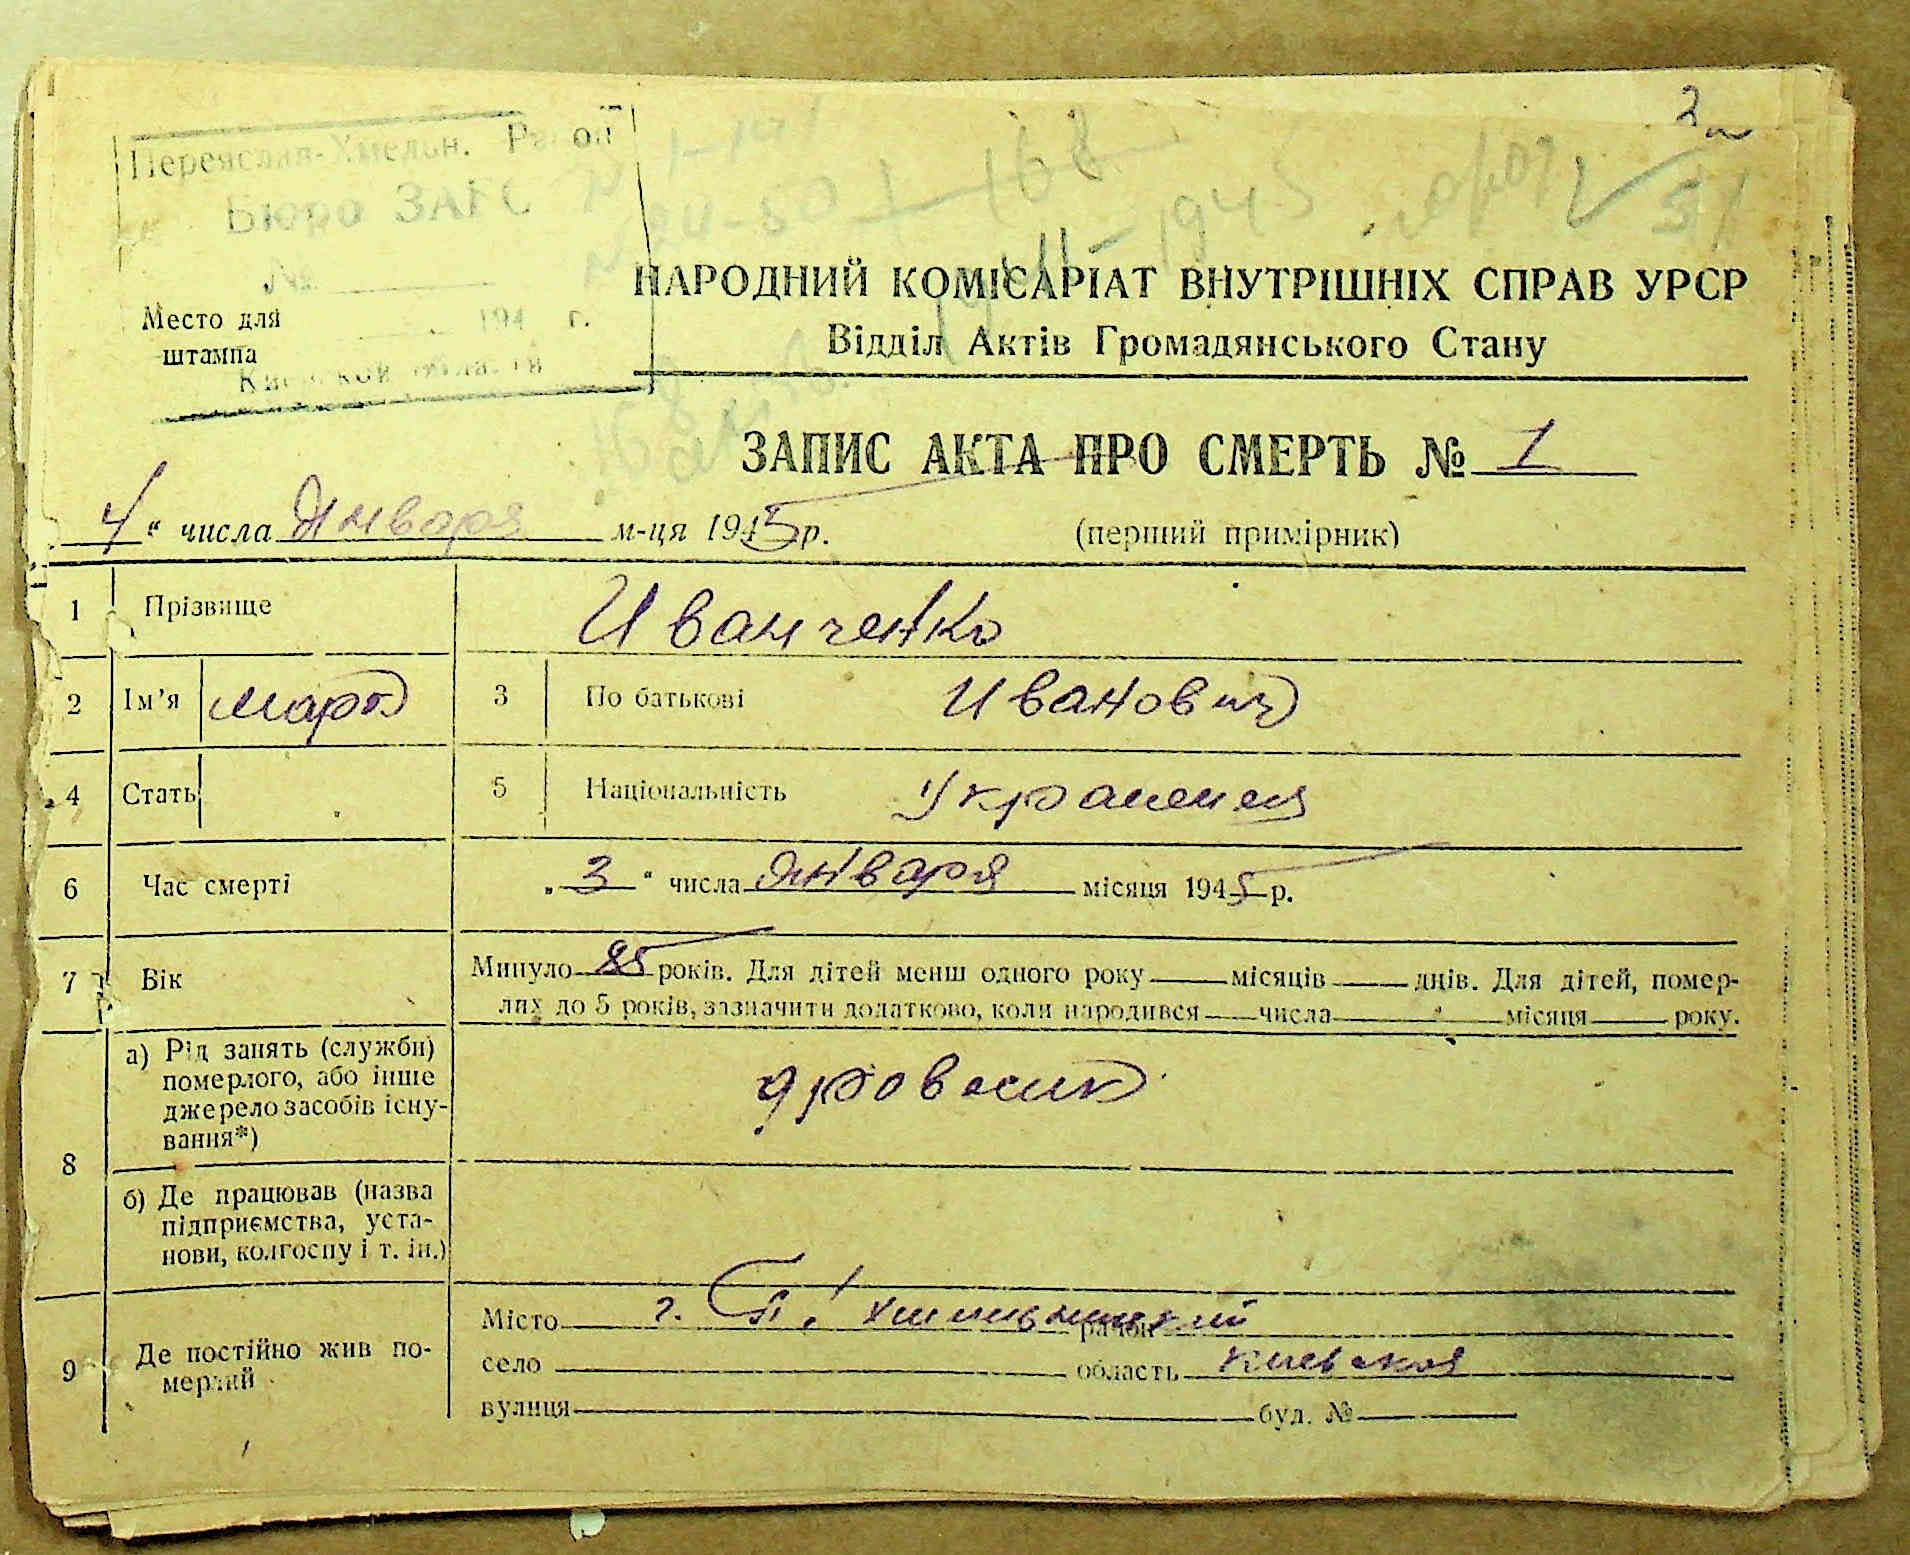 2
Переяслав-Хмельн. Район
Бюро ЗАГС
№
194 г.
Место для
штампа
Киевской области
1945
НАРОДНИЙ КОМІСАРІАТ ВНУТРІШНІХ СПРАВ УРСР
Відділ Актів Громадянського Стану
ЗАПИС АКТА ПРО СМЕРТЬ № 1
4 " числа Января м-ця 1945 р. (перший примірник)
1 Прізвище Иванченко
2 Ім'я 3 По батькові Иванович
4 Стать 5 Національність
6 Час смерті „ 3 " числа января місяця 1945 р.
7 Вік Минуло 85 років. Для дітей менш одного року місяців днів. Для дітей, помер-
лих до 5 років, зазначити додатково, коли народився числа місяця року.
8 а) Рід занять (служби)
померлого, або інше
джерело засобів існу-
вання*)
б) Де працював (назва
підприємства, уста-
нови, колгоспу і т. ін.)
9 Де постійно жив по-
мерлий
Місто г. П. Хмельницкий район
село область Киевская
вулиця буд. №